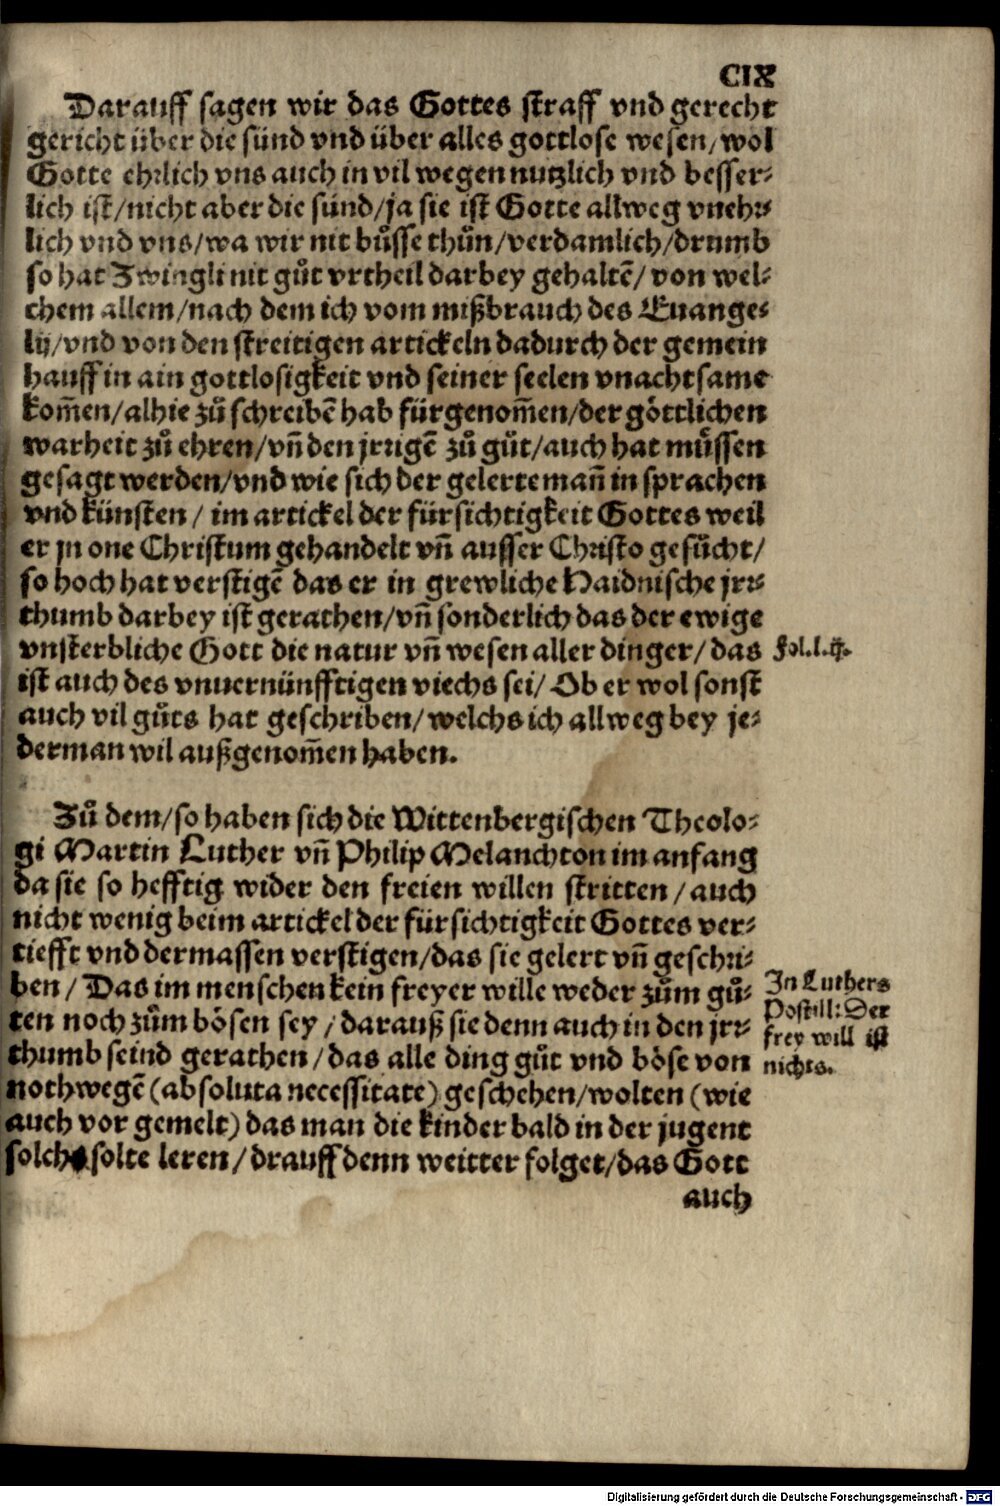 CIX
Darauff sagen wir das Gottes straff vnd gerecht
gericht über die sünd vnd über alles gottlose wesen/wol
Gotte ehrlich vns auch in vil wegen nutzlich vnd besser⸗
lich ist/nicht aber die sünd/ja sie ist Gotte allweg vnehr⸗
lich vnd vns/wa wir nit bůsse thůn/verdamlich/drumb
so hat Zwingli nit gůt vrtheil darbey gehaltē/ von wel⸗
chem allem/nach dem ich vom mißbrauch des Euange⸗
lij/vnd von den streitigen artickeln dadurch der gemein
hauff in ain gottlosigkeit vnd seiner seelen vnachtsame
kom̄en/alhie zů schreibē hab fürgenom̄en/der göttlichen
warheit zů ehren/vn̄ den jrrigē zů gůt/auch hat můssen
gesagt werden/vnd wie sich der gelerte man̄ in sprachen
vnd künsten / im artickel der fürsichtigkeit Gottes weil
er jn one Christum gehandelt vn̄ ausser Christo gesůcht/
so hoch hat verstigē das er in grewliche Haidnische jrr⸗
thumb darbey ist gerathen/vn̄ sonderlich das der ewige
vnsterbliche Gott die natur vn̄ wesen aller dinger/das
Fol.l.ij.
ist auch des vnuernünfftigen viechs sei/ Ob er wol sonst
auch vil gůts hat geschriben/welchs ich allweg bey je⸗
derman wil außgenom̄en haben.
Zů dem/so haben sich die Wittenbergischen Theolo⸗
gi Martin Luther vn̄ Philip Melanchton im anfang
da sie so hefftig wider den freien willen stritten / auch
nicht wenig beim artickel der fürsichtigkeit Gottes ver⸗
tiefft vnd dermassen verstigen/das sie gelert vn̄ geschri⸗
ben / Das im menschen kein freyer wille weder zům gů⸗
ten noch zům bösen sey / darauß sie denn auch in den jrr⸗
thumb seind gerathen/das alle ding gůt vnd böse von
nothwegē (absoluta necessitate) geschehen/wolten (wie
auch vor gemelt) das man die kinder bald in der jugent
solchs solte leren/drauff denn weitter folget/das Gott
In Luthers
Postill: Der
frey will ist
nichts.
auch
Digitalisierung gefördert durch die Deutsche Forschungsgemeinschaft - DFG